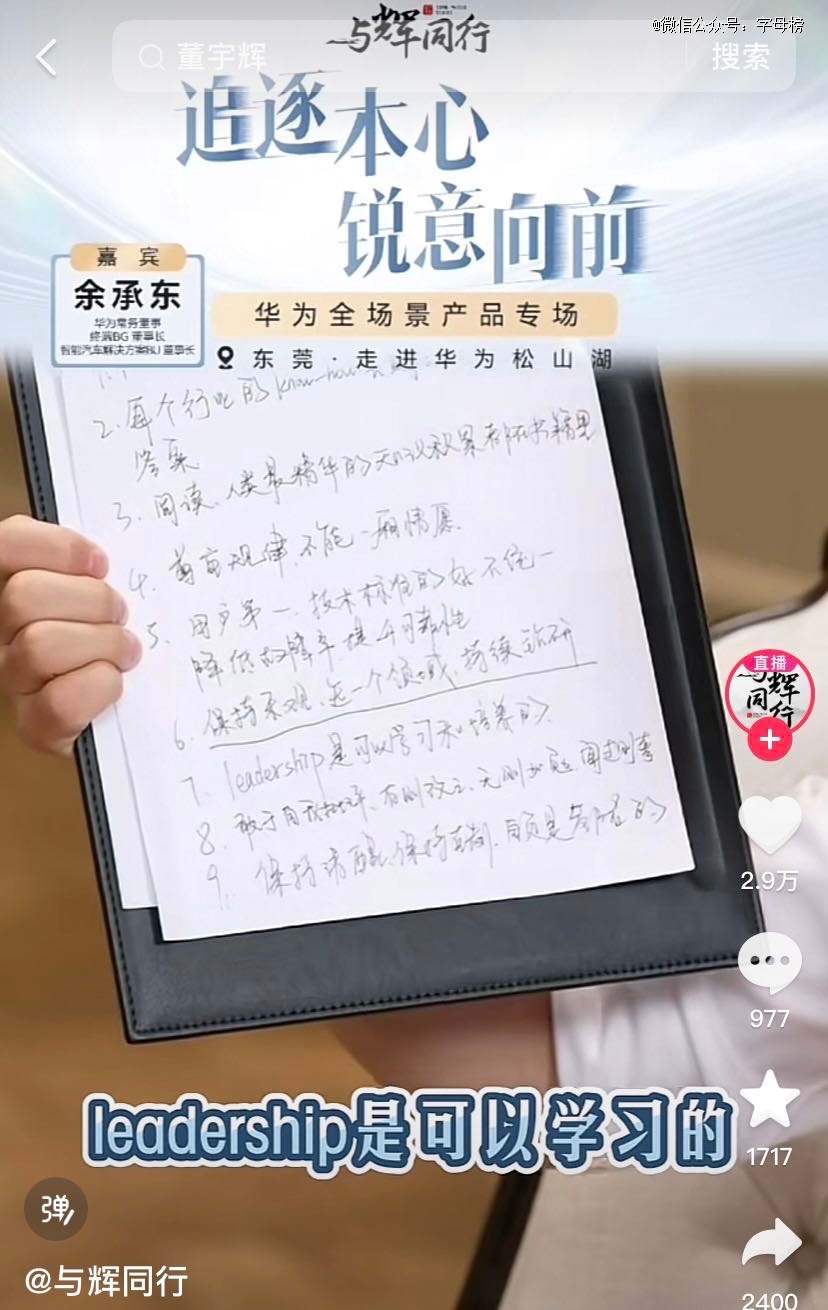 与辉同行
@微信公众号：字母榜
董宇辉
搜索
追逐本心
锐意向前
嘉宾
余承东
华为常务董事
终端BG 董事长
智能汽车解决方案BU 董事长
华为全场景产品专场
东莞·走进华为松山湖
2. 每个行业的 know-how
答案
3. 阅读、人类最精华的知识积累都在书籍里
4. 尊重规律、不能一厢情愿
5. 用户第一、技术标准的好不统一
降低故障率提升可靠性
6. 保持乐观、在一个领域、持续钻研
7. leadership是可以学习和培养的
8. 敢于自我批评、有则改之、无则加勉、闻过则喜
9. 保持清醒、保持
直播
与辉同行
2.9万
977
1717
2400
leadership是可以学习的
弹
@与辉同行